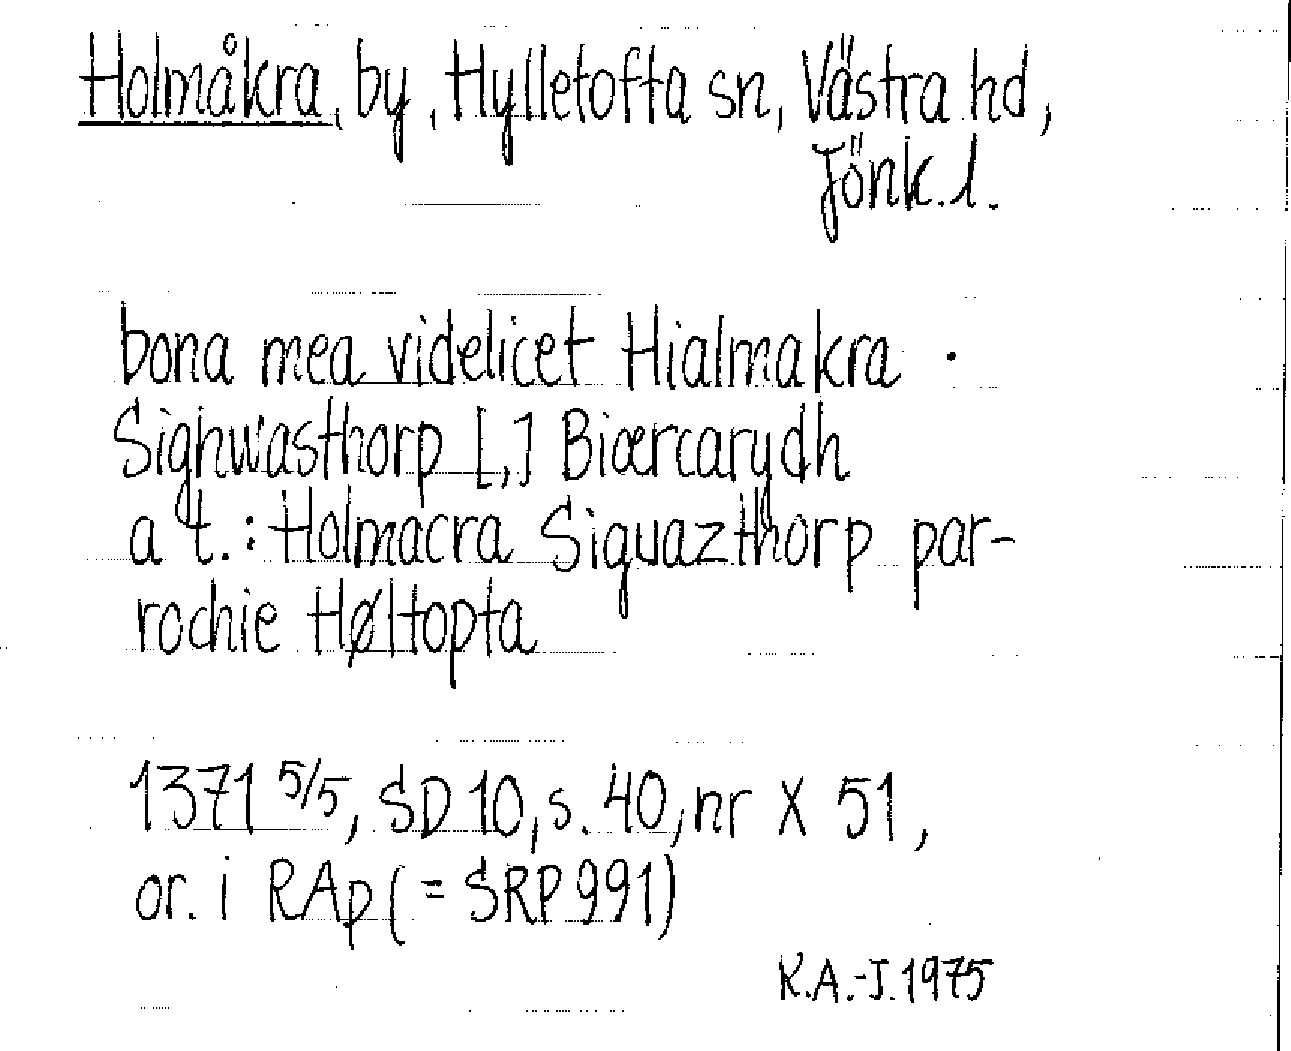 Holmåkra, by, Hylletofta sn, Västra hd,
Jönk. l.
bona mea videlicet Hialmakra ·
Sighwasthorp [,] Biærcarydh
a t.: Holmacra Siguazthorp par-
rochie Høltopta
1371 5/5, SD 10, s. 40, nr X 51,
or. i RAp (= SRP 991)
K.A.-J. 1975